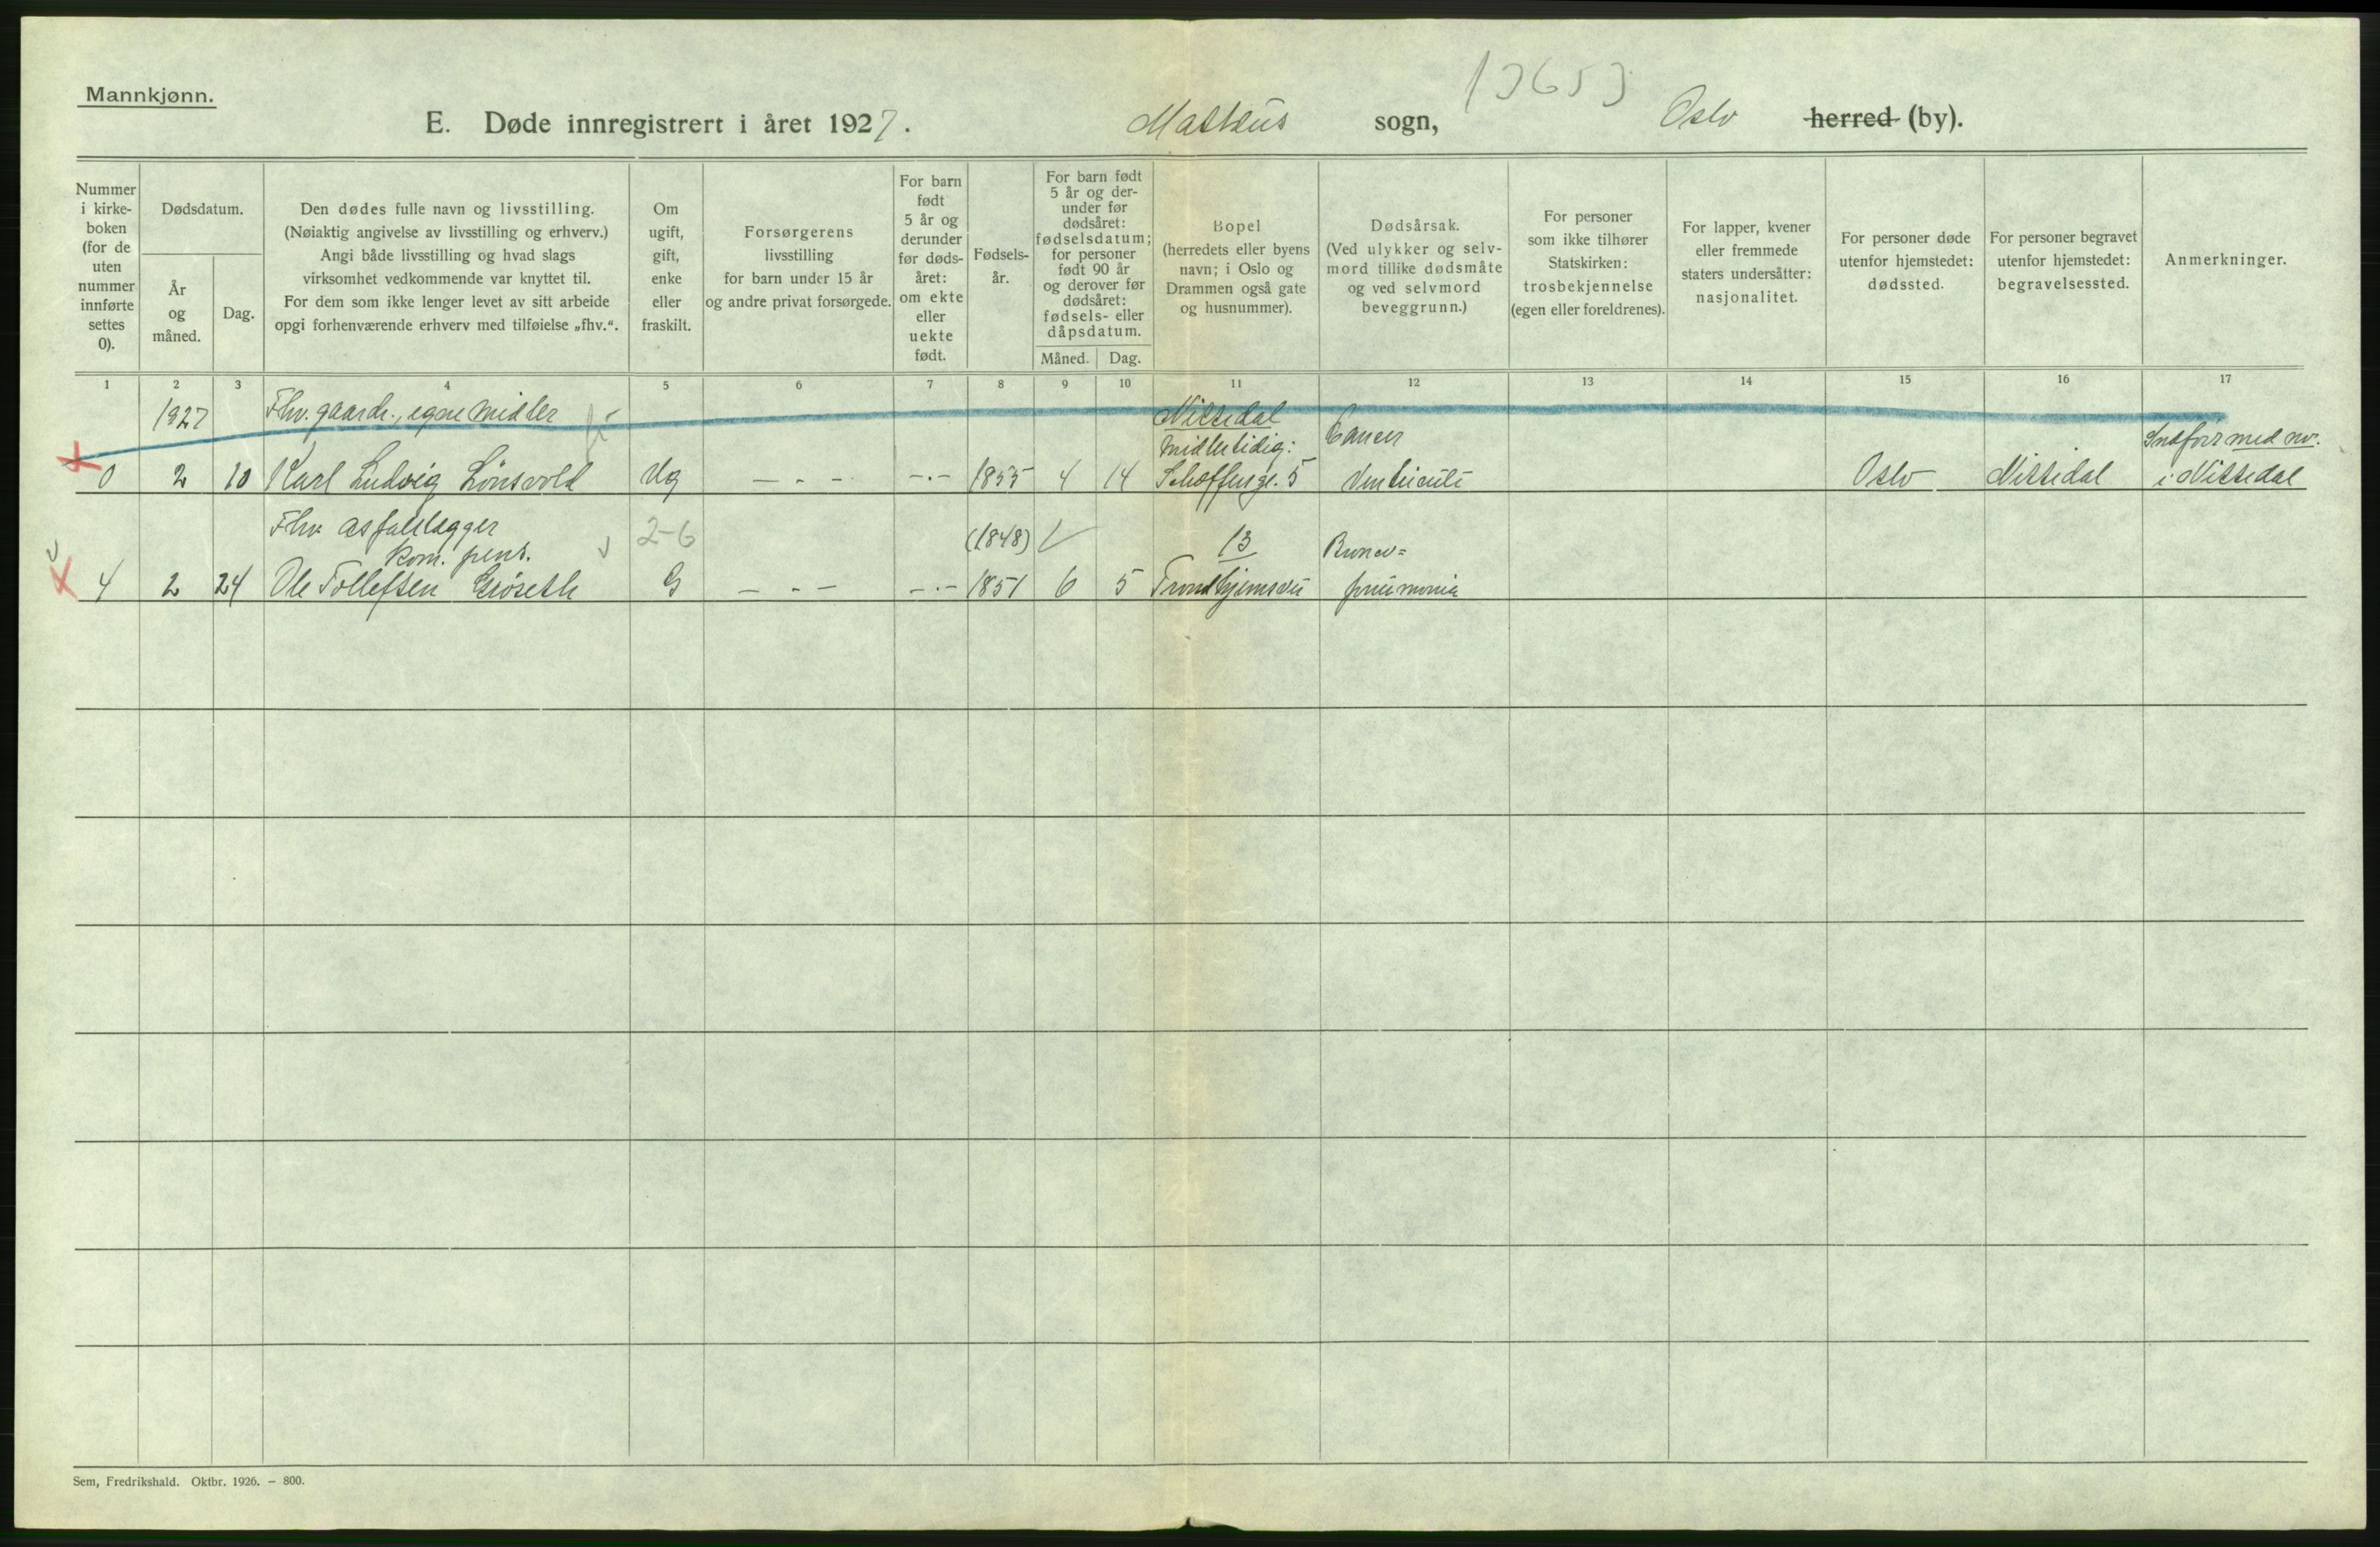 Mannkjønn.
13653
E. Døde innregistrert i året 1927. Matteus sogn, Oslo herred (by).
Nummer i kirke-boken (for de uten nummer innførte settes 0).
Dødsdatum.
År og måned.
Dag.
Den dødes fulle navn og livsstilling.
(Nøiaktig angivelse av livsstilling og erhverv.)
Angi både livsstilling og hvad slags
virksomhet vedkommende var knyttet til.
For dem som ikke lenger levet av sitt arbeide
opgi forhenværende erhverv med tilføielse „fhv.“.
Om ugift, gift, enke eller fraskilt.
Forsørgerens
livsstilling
for barn under 15 år
og andre privat forsørgede.
For barn født 5 år og derunder før døds-året: om ekte eller uekte født.
Fødsels-år.
For barn født 5 år og der-under før dødsåret: fødselsdatum; for personer født 90 år og derover før dødsåret: fødsels- eller dåpsdatum.
Måned.
Dag.
Bopel
(herredets eller byens
navn; i Oslo og
Drammen også gate
og husnummer).
Dødsårsak.
(Ved ulykker og selv-
mord tillike dødsmåte
og ved selvmord
beveggrunn.)
For personer
som ikke tilhører
Statskirken:
trosbekjennelse
(egen eller foreldrenes).
For lapper, kvener
eller fremmede
staters undersåtter:
nasjonalitet.
For personer døde
utenfor hjemstedet:
dødssted.
For personer begravet
utenfor hjemstedet:
begravelsessted.
Anmerkninger.
1 2 3 4 5 6 7 8 9 10 11 12 13 14 15 16 17
1927 Fhv. gaardr., egne midler Nittedal
Midlertidig: Cancer Indført med nr.
0 2 10 Karl Ludvig Lönsvold Ug — - - -.- 1855 4 14 Schoffengt. 5 Ventriculi Oslo Nittedal i Nittedal
Fhv. asfaltlægger 2-6 (1848) 13 Bronco=
Kom. pens.
4 2 24 Ole Tollefsen Griøseth G — - — -.- 1851 6 5 Trondhjemsvei pneumonia
Sem, Fredrikshald. Oktbr. 1926. — 800.